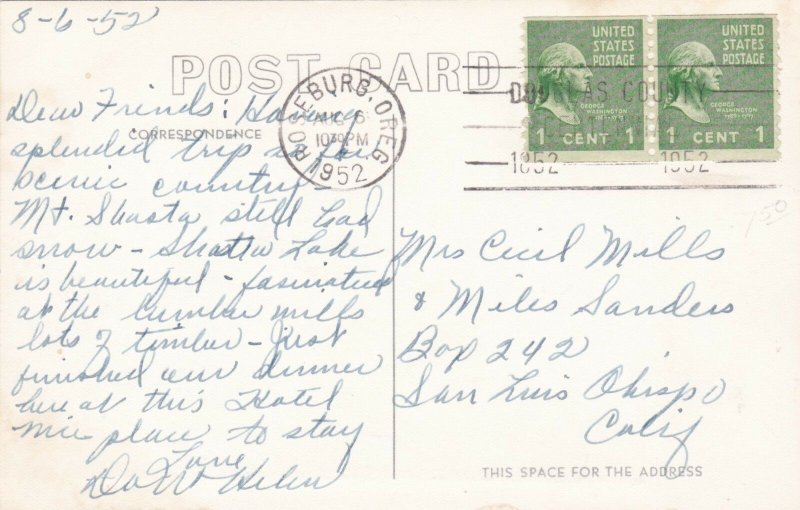 8-6-52
POST CARD
CORRESPONDENCE
Dear Friends: Having
splendid trip so far
scenic country -
Mt. Shasta still had
snow - Shasta Lake
is beautiful - fascinated
at the lumber mills
lots of timber - Just
finished our dinner
here at this Hotel
nice place to stay
Love
Helen
ROSEBURG, OREG.
AUG 6
10 30 PM
1952
DOUGLAS COUNTY
1852 1952
UNITED
STATES
POSTAGE
GEORGE
WASHINGTON
1 CENT 1
UNITED
STATES
POSTAGE
GEORGE
WASHINGTON
1 CENT 1
150
Mrs Cecil Mills
& Miles Sanders
Box 242
San Luis Obispo
Calif
THIS SPACE FOR THE ADDRESS